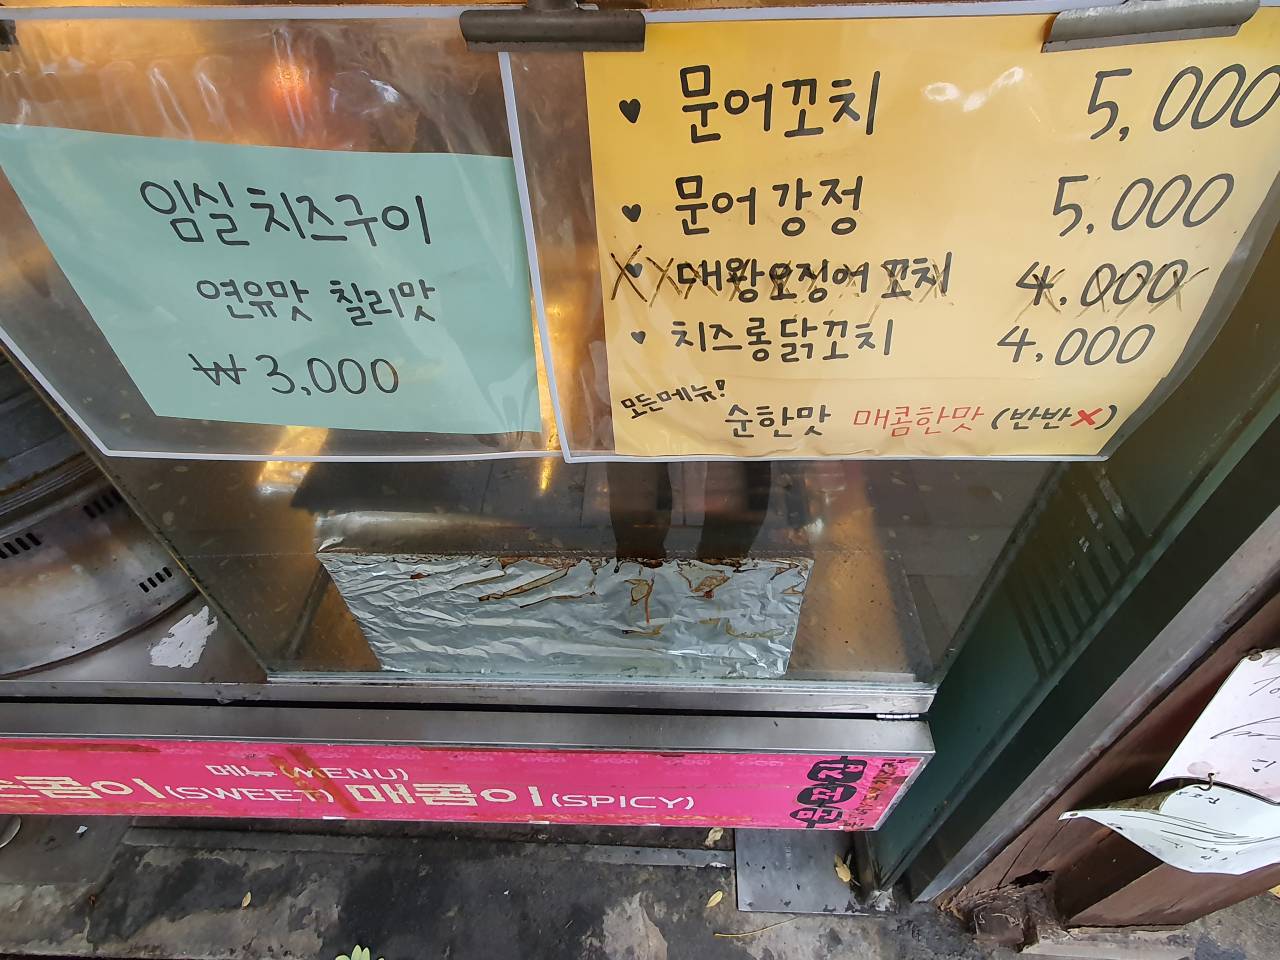 임실치즈구이
연유맛 칠리맛
₩3,000
♥ 문어꼬치 5,000
♥ 문어강정 5,000
♥ 대왕오징어꼬치 4,000
♥ 치즈롱닭꼬치 4,000
모든메뉴!
순한맛 매콤한맛 (반반X)
메뉴(MENU)
콤이(SWEET) 매콤이(SPICY)